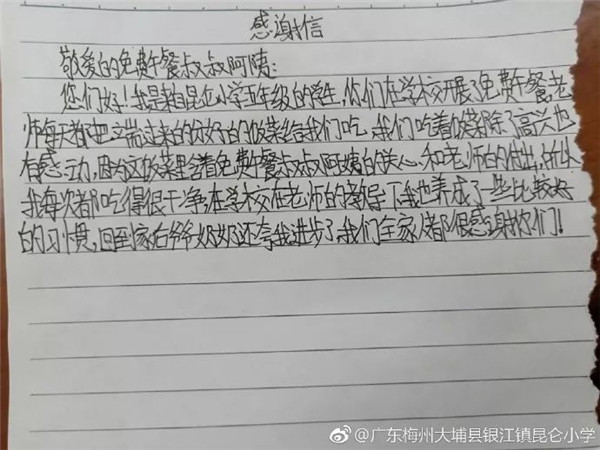 感谢信
敬爱的免费午餐叔叔阿姨:
您们好!我是来自昆仑小学五年级的学生,你们在学校开展了免费午餐,老
师每天都把端过来的饭菜给我们吃,我们吃着饭菜除了高兴也
有感动,因为这饭菜里含着免费午餐叔叔阿姨的关心和老师的付出,所以
我每次都吃得很干净,在学校在老师的指导下我也养成了一些比较好
的习惯,回到家后爷爷奶奶还夸我进步了,我们全家人都很感谢你们!
@广东梅州大埔县银江镇昆仑小学